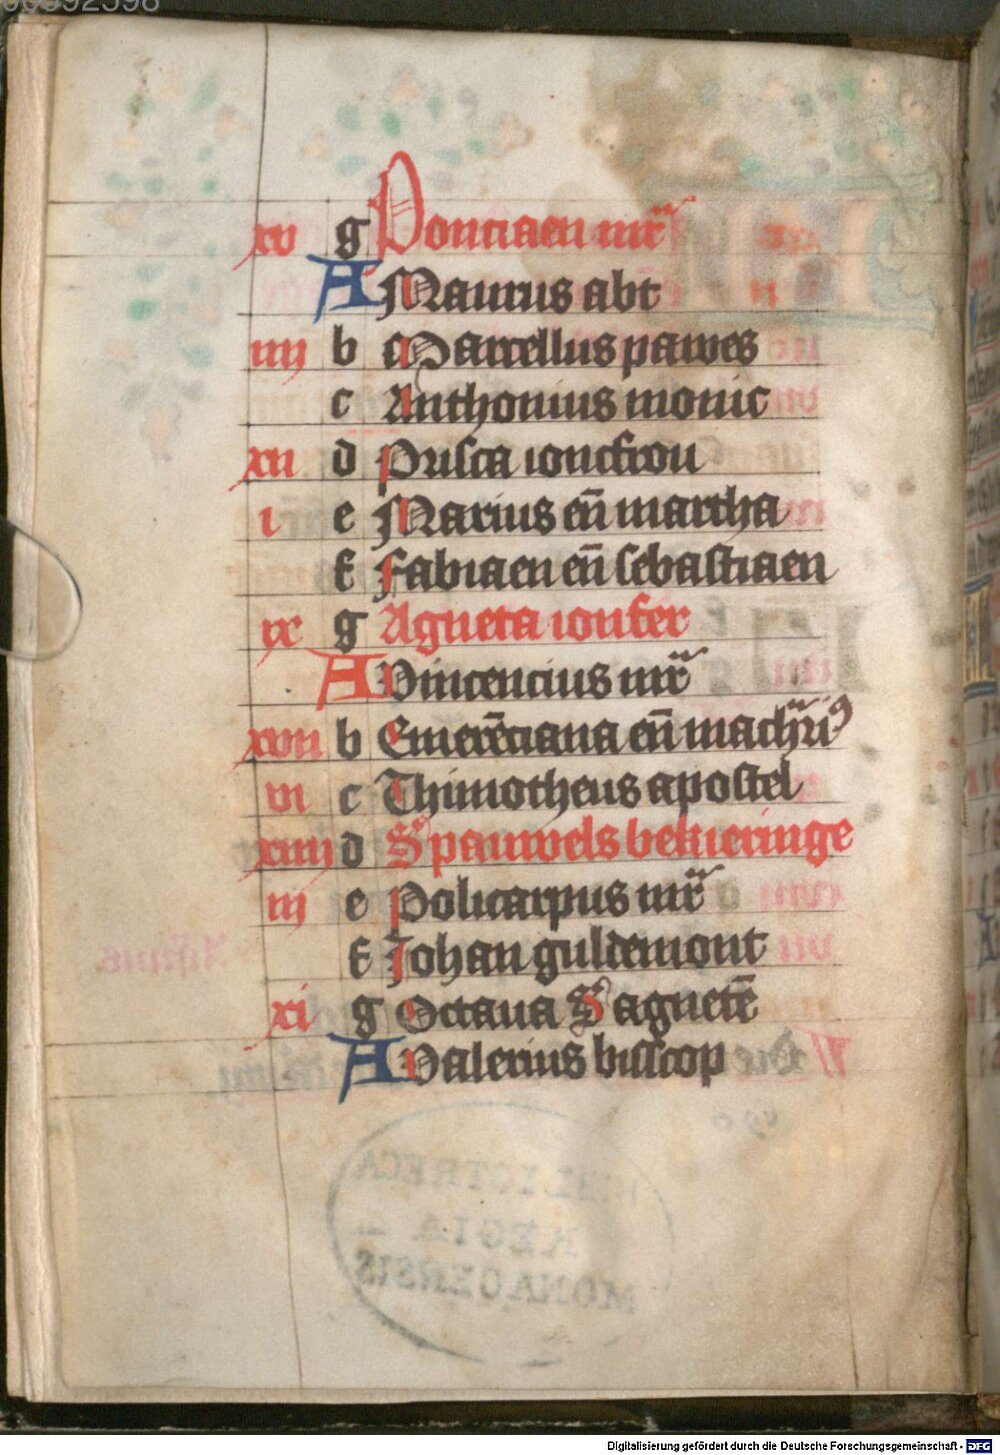 xv g Ponciaen mr̄
A Maurus abt
iiij b Marcellus pawes
c Anthonius monic
xij d Prisca ioncfrou
i e Marius eñ martha
f Fabiaen eñ sebastiaen
ix g Agneta ionfer
A Vincencius mr̄
xvij b Emerēciana eñ mach̄ri⁹
vi c Thimotheus apostel
xiiij d S pauwels bekieringe
iij e Policarpus mr̄
f Johan guldemont
xi g Octaua S agnetē
A Valerius bisscop
BIBLIOTHECA
REGIA
MONACENSIS
Digitalisierung gefördert durch die Deutsche Forschungsgemeinschaft - DFG